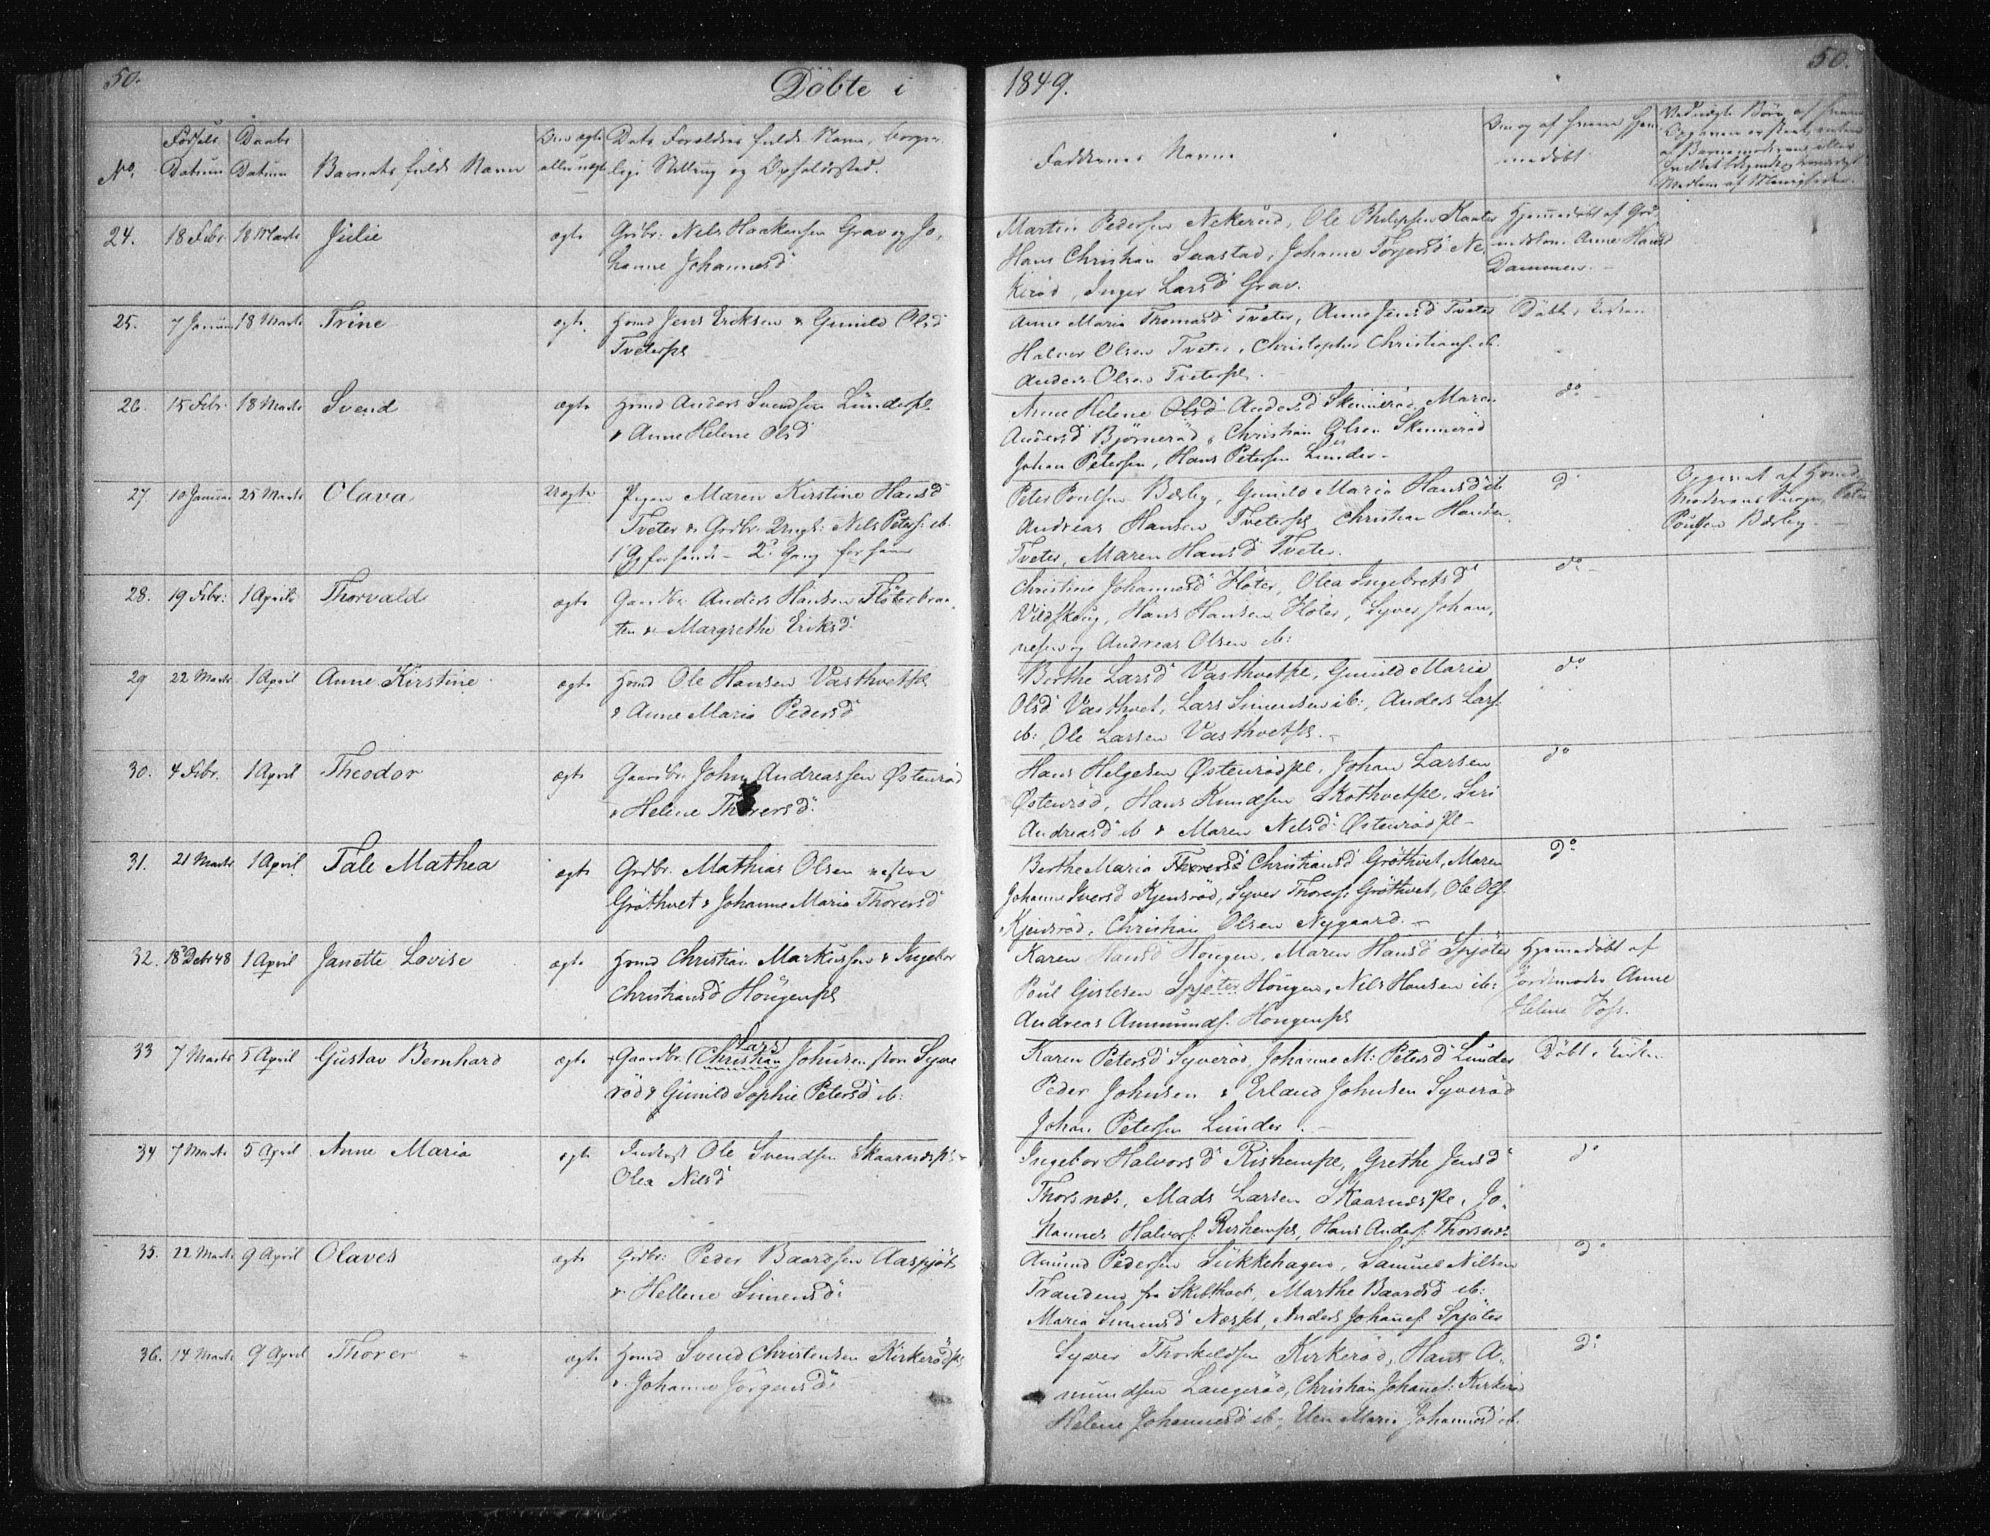 50.
Döbte i
1849.
50.
No.
Fødsels
Datum
Daabs
Datum
Barnets fulde Navn
Om ægte
eller uægte
Dets Forældres fulde Navn, borger-
lige Stilling og Opholdssted.
Faddernes Navne
Om og af hvem hjem-
medöbt.
24.
18 Febr.
18 Marts
Julie
ægte
Grdbr. Nels Haakensen Grav og Jo,
hanne Johannesd
Martin Pedersen Nekeröd, Ole Philipsen
Hans Christian Saastad, Johanne Torjersd Ne-
keröd, Inger Larsd Grav.
Hjemmedöbt af
Anne Hansd
Dammen.
25.
7 Januar
18 Marts
Trine
ægte
Hmd Jens Eriksen & Gunild Olsd
Tveterpl
Anne Maria Thomasd Tveter, Anne Jensd Tveter
Halvor Olsen Tveter, Christopher Christians. ib.
Anders Olsen Tveterpl.
Döbt i Kirken
26.
15 Febr.
18 Marts
Svend
ægte
Hmd Anders Svendsen Lunderpl
& Anne Helene Olsd
Anne Helene Olsd Andersd Skenneröd, Maren
Andersd Björneröd, Christian Olsen Skenneröd
Johan Petersen, Hans Petersen Lunder.
do
27.
10 Januar
25 Marts
Olava
uægte
Pigen Maren Kirstine Hansd
Tveter & Grdbr. Ungk. Nils Peters. ib.
1 G for hende - 2 Gang for ham
Peter Poulsen Bæsby, Gunild Maria Hansd ib
Andreas Hansen Tveterpl, Christian Hansen
Tveter, Maren Hansd Tveter.
do
Opgivet af
Poulsen Bæsby.
28.
19 Febr.
1 April
Thorvald
ægte
Gaardbr. Anders Hansen Flöterbraa-
ten & Margrethe Eriksd.
Christine Johannesd Flöter, Olea Ingebretsd
Vildskoug, Hans Hansen Flöter, Syver Johan,
nesen og Andreas Olsen ib:
do
29
22 Marts
1 April
Anne Kirstine
ægte
Hmd Ole Hansen Vasthvetpl
& Anne Maria Pedersd
Berthe Larsd Vasthvetpl, Gunild Maria
Olsd Vasthvet, Lars Simensen ib:, Anders Lars.
ib: Ole Larsen Vasthvetpl.
do
30.
4 Febr.
1 April
Theodor
ægte
Gaardbr. John Andreassen Östenröd
& Helene Thorersd.
Hans Helgesen Östenrödpl, Johan Larsen
Östenröd, Hans Knudsen Skothvetpl. Siri
Andreasd ib & Maren Nelsd Östenrödpl
do
31.
21 Marts
1 April
Tale Mathea
ægte
Grdbr. Mathias Olsen nestre
Gröthvet & Johanne Maria Thorersd
Berthe Maria Thorersd Christiansd Gröthvet, Maren
Johanne Iversd Kjensröd, Syver Thorers. Gröthvet, Ole Ols.
Kjensröd, Christian Olsen Nygaard.
do
32.
18 Decbr 48
1 April
Janette Lovise
ægte
Hmd Christian Markussen & Ingebor
Christiansd Höugenpl
Karen Hansd Hougen, Maren Hansd Spjöter
Poul Gislesen Spjöter Höugen, Nils Hansen ib:
Andreas Ammunds. Hougenpl
Hjemmedöbt af
Jordemoder Anne
Helene Foss.
33
7 Marts
5 April
Gustav Bernhard
ægte
Gaardbr. (Christian Lars) Johnsen store Syve
röd & Gunild Sophie Petersd ib:
Karen Petersd Syveröd, Johanne M: Petersd Lunder
Peder Johnsen & Erland Johnsen Syveröd
Johan Petersen Lunder.
Döbt i Kirken
34
7 Marts
5 April
Anne Maria
ægte
Inderst Ole Svendsen Skaarnæspl. &
Olea Nilsd
Ingebor Halvorsd Röshempl, Grethe Jensd
Thorsnæs, Mads Larsen Skaarnæspl, Jo.
hannes Halvors. Röshempl, Hans Anders. Thorsnæs
do
35.
22 Marts
9 April
Olaves
ægte
Grdbr. Peder Baardsen Aaspjöt
& Hellene Simensd
Amund Pedersen Lükkehagen, Samuel Nilsen
Tranden fra Skibthvet, Marthe Baardsd ib:
Maria Simensd Næspl, Anders Johans. Spjöter
do
36.
14 Marts
9 April
Thorer
ægte
Hmd Svend Christensen Kirkerödpl
& Johanne Jörgensd
Syver Thorkildsen Kirkeröd, Hans A-
mundsen Langeröd, Christian Johans: Kirkeröd
Helene Johannesd ib, Elen Maria Johannesd ib.
do